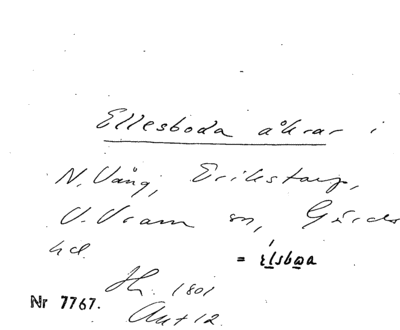 Ellesboda åkrar i
N. Vång, Erikstorp,
V. Vram sn, Gärds
hd.
= élsbɷa
Hr. 1801
Akt 12.
Nr 7767.